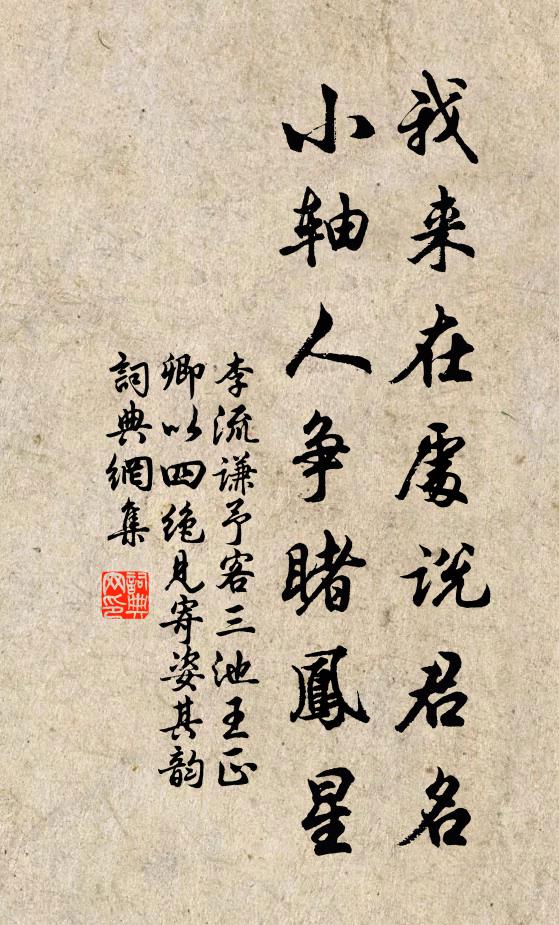 我来在處说君名
小轴人争睹鳳星
李流谦予客三池王正
卿以四绝见寄姿其韵
詞典網集
詞典
网印